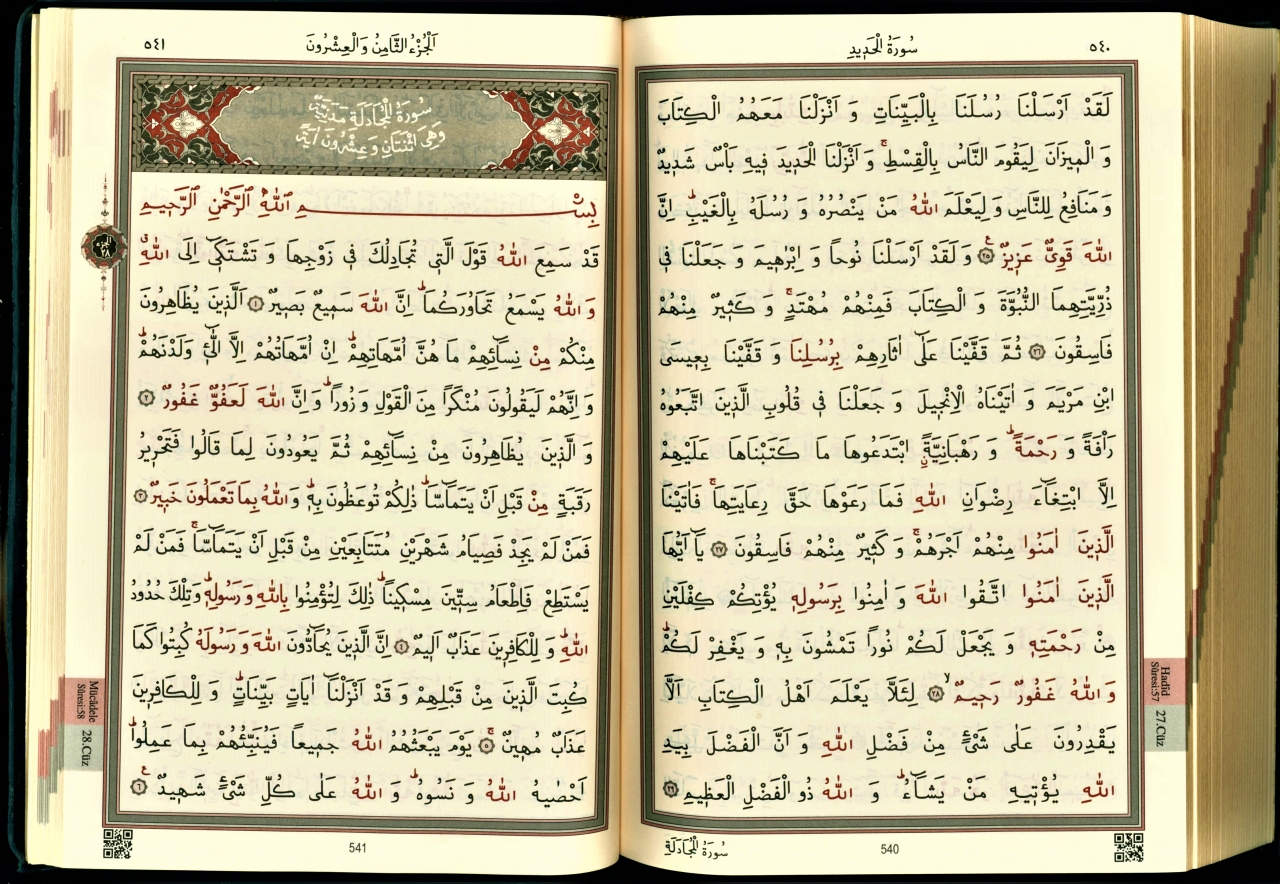 ٥٤٠
سُورَةُ الْحَدِيدِ
لَقَدْ اَرْسَلْنَا رُسُلَنَا بِالْبَيِّنَاتِ وَ اَنْزَلْنَا مَعَهُمُ الْكِتَابَ
وَ الْمِيزَانَ لِيَقُومَ النَّاسُ بِالْقِسْطِۚ وَ اَنْزَلْنَا الْحَدِيدَ فِيهِ بَأْسٌ شَدِيدٌ
وَ مَنَافِعُ لِلنَّاسِ وَ لِيَعْلَمَ اللّٰهُ مَنْ يَنْصُرُهُ وَ رُسُلَهُ بِالْغَيْبِۜ اِنَّ
اللّٰهَ قَوِىٌّ عَزِيزٌ ۟ ﴿٢٥﴾ وَ لَقَدْ اَرْسَلْنَا نُوحاً وَ اِبْرٰهِيمَ وَ جَعَلْنَا فِى
ذُرِّيَّتِهِمَا النُّبُوَّةَ وَ الْكِتَابَ فَمِنْهُمْ مُهْتَدٍۚ وَ كَثِيرٌ مِنْهُمْ
فَاسِقُونَ ﴿٢٦﴾ ثُمَّ قَفَّيْنَا عَلٰٓى اٰثَارِهِمْ بِرُسُلِنَا وَ قَفَّيْنَا بِعِيسَى
ابْنِ مَرْيَمَ وَ اٰتَيْنَاهُ الْاِنْجِيلَ وَ جَعَلْنَا فِى قُلُوبِ الَّذِينَ اتَّبَعُوهُ
رَأْفَةً وَ رَحْمَةًۜ وَ رَهْبَانِيَّةًۨ ابْتَدَعُوهَا مَا كَتَبْنَاهَا عَلَيْهِمْ
اِلَّا ابْتِغَٓاءَ رِضْوَانِ اللّٰهِ فَمَا رَعَوْهَا حَقَّ رِعَايَتِهَاۚ فَاٰتَيْنَا
الَّذِينَ اٰمَنُوا مِنْهُمْ اَجْرَهُمْۚ وَ كَثِيرٌ مِنْهُمْ فَاسِقُونَ ﴿٢٧﴾ يَٓا اَيُّهَا
الَّذِينَ اٰمَنُوا اتَّقُوا اللّٰهَ وَ اٰمِنُوا بِرَسُولِهِ يُؤْتِكُمْ كِفْلَيْنِ
مِنْ رَحْمَتِهِ وَ يَجْعَلْ لَكُمْ نُوراً تَمْشُونَ بِهِ وَ يَغْفِرْ لَكُمْۜ
وَ اللّٰهُ غَفُورٌ رَحِيمٌۙ ﴿٢٨﴾ لِئَلَّا يَعْلَمَ اَهْلُ الْكِتَابِ اَلَّا
يَقْدِرُونَ عَلٰى شَىْءٍ مِنْ فَضْلِ اللّٰهِ وَ اَنَّ الْفَضْلَ بِيَدِ
اللّٰهِ يُؤْتِيهِ مَنْ يَشَٓاءُۜ وَ اللّٰهُ ذُو الْفَضْلِ الْعَظِيمِ ﴿٢٩﴾
Hadîd
Sûresi:57
27.Cüz
540
سُورَةُ الْمُجَادَلَةِ
اَلْجُزْءُ الثَّامِنُ وَ الْعِشْرُونَ
٥٤١
سُورَةُ الْمُجَادَلَةِ مَدَنِيَّةٌ
وَهِىَ اثْنَتَانِ وَ عِشْرُونَ اٰيَةً
بِسْمِ اللّٰهِ الرَّحْمٰنِ الرَّحِيمِ
الجزء ٢٨
قَدْ سَمِعَ اللّٰهُ قَوْلَ الَّتِى تُجَادِلُكَ فِى زَوْجِهَا وَ تَشْتَكِٓى اِلَى اللّٰهِۗ
وَ اللّٰهُ يَسْمَعُ تَحَاوُرَكُمَاۜ اِنَّ اللّٰهَ سَمِيعٌ بَصِيرٌ ﴿١﴾ اَلَّذِينَ يُظَاهِرُونَ
مِنْكُمْ مِنْ نِسَٓائِهِمْ مَا هُنَّ اُمَّهَاتِهِمْۜ اِنْ اُمَّهَاتُهُمْ اِلَّا الّٰٓـِٔى وَلَدْنَهُمْۜ
وَ اِنَّهُمْ لَيَقُولُونَ مُنْكَراً مِنَ الْقَوْلِ وَ زُوراًۜ وَ اِنَّ اللّٰهَ لَعَفُوٌّ غَفُورٌ ﴿٢﴾
وَ الَّذِينَ يُظَاهِرُونَ مِنْ نِسَٓائِهِمْ ثُمَّ يَعُودُونَ لِمَا قَالُوا فَتَحْرِيرُ
رَقَبَةٍ مِنْ قَبْلِ اَنْ يَتَمَٓاسَّاۜ ذٰلِكُمْ تُوعَظُونَ بِهِۜ وَ اللّٰهُ بِمَا تَعْمَلُونَ خَبِيرٌ ﴿٣﴾
فَمَنْ لَمْ يَجِدْ فَصِيَامُ شَهْرَيْنِ مُتَتَابِعَيْنِ مِنْ قَبْلِ اَنْ يَتَمَٓاسَّاۚ فَمَنْ لَمْ
يَسْتَطِعْ فَاِطْعَامُ سِتِّينَ مِسْكِيناًۜ ذٰلِكَ لِتُؤْمِنُوا بِاللّٰهِ وَ رَسُولِهِۜ وَ تِلْكَ حُدُودُ
اللّٰهِۜ وَ لِلْكَافِرِينَ عَذَابٌ اَلِيمٌ ﴿٤﴾ اِنَّ الَّذِينَ يُحَٓادُّونَ اللّٰهَ وَ رَسُولَهُ كُبِتُوا كَمَا
كُبِتَ الَّذِينَ مِنْ قَبْلِهِمْ وَ قَدْ اَنْزَلْنَٓا اٰيَاتٍ بَيِّنَاتٍۜ وَ لِلْكَافِرِينَ
عَذَابٌ مُهِينٌۚ ﴿٥﴾ يَوْمَ يَبْعَثُهُمُ اللّٰهُ جَمِيعاً فَيُنَبِّئُهُمْ بِمَا عَمِلُواۜ
اَحْصٰيهُ اللّٰهُ وَ نَسُوهُۜ وَ اللّٰهُ عَلٰى كُلِّ شَىْءٍ شَهِيدٌ ۟ ﴿٦﴾
Mücâdele
Sûresi:58
28.Cüz
541